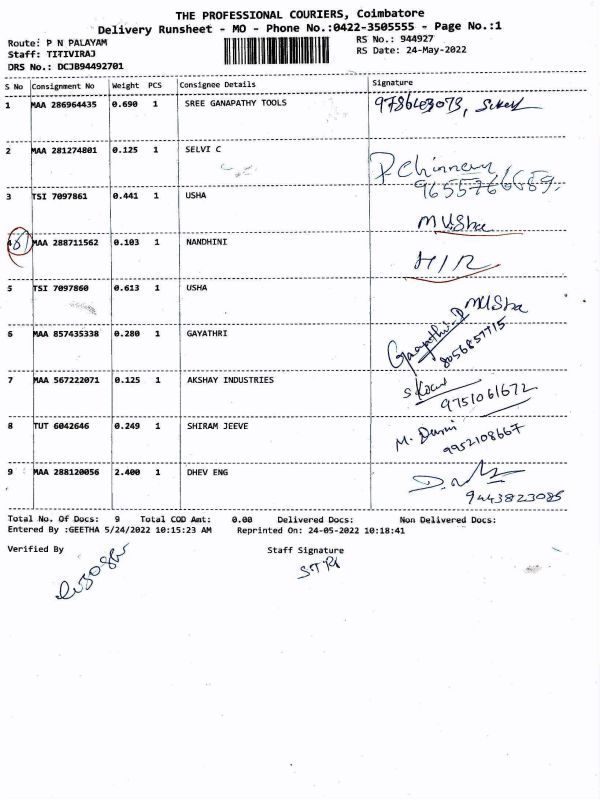 THE PROFESSIONAL COURIERS, Coimbatore
Delivery Runsheet - MO - Phone No.:0422-3505555 - Page No.:1
Route: P N PALAYAM RS No.: 944927
Staff: TITIVIRAJ RS Date: 24-May-2022
DRS No.: DCJB94492701
S No Consignment No Weight PCS Consignee Details Signature
1 MAA 286964435 0.690 1 SREE GANAPATHY TOOLS
2 MAA 281274801 0.125 1 SELVI C
3 TSI 7097861 0.441 1 USHA
M USha
MAA 288711562 0.103 1 NANDHINI
5 TSI 7097860 0.613 1 USHA
M USha
6 MAA 857435338 0.280 1 GAYATHRI
8056857715
7 MAA 567222071 0.125 1 AKSHAY INDUSTRIES
9751061672
8 TUT 6042646 0.249 1 SHIRAM JEEVE
9952108667
9 MAA 288120056 2.400 1 DHEV ENG
9443823085
Total No. Of Docs: 9 Total COD Amt: 0.00 Delivered Docs: Non Delivered Docs:
Entered By :GEETHA 5/24/2022 10:15:23 AM Reprinted On: 24-05-2022 10:18:41
Verified By Staff Signature